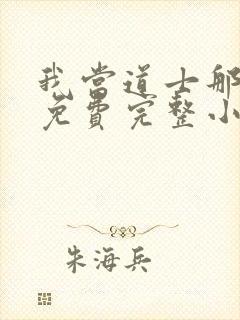 我当道士那
免费完整小
朱海兵